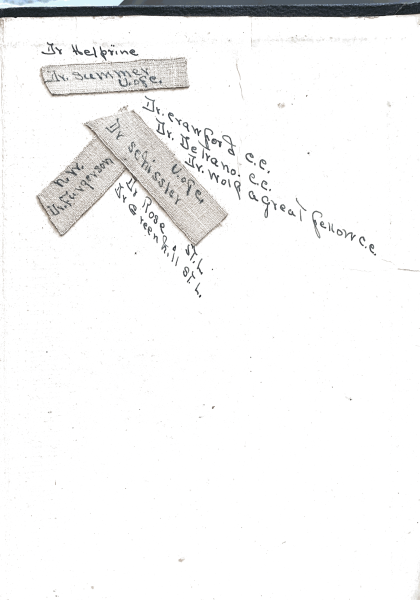 Dr Helprine
Dr. Summer
U. of C.
Dr. Crawford C.C.
Dr. Beltrano. C.C.
Dr. Wolf a great fellow C.C.
Dr Schissler
U. of C.
N.W.
Dr. Furgerson
Dr Rose St. L.
Dr Greenhill St. L.